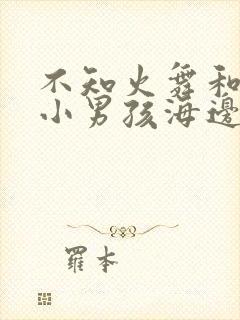 不知火舞和
小男孩海邊
羅本